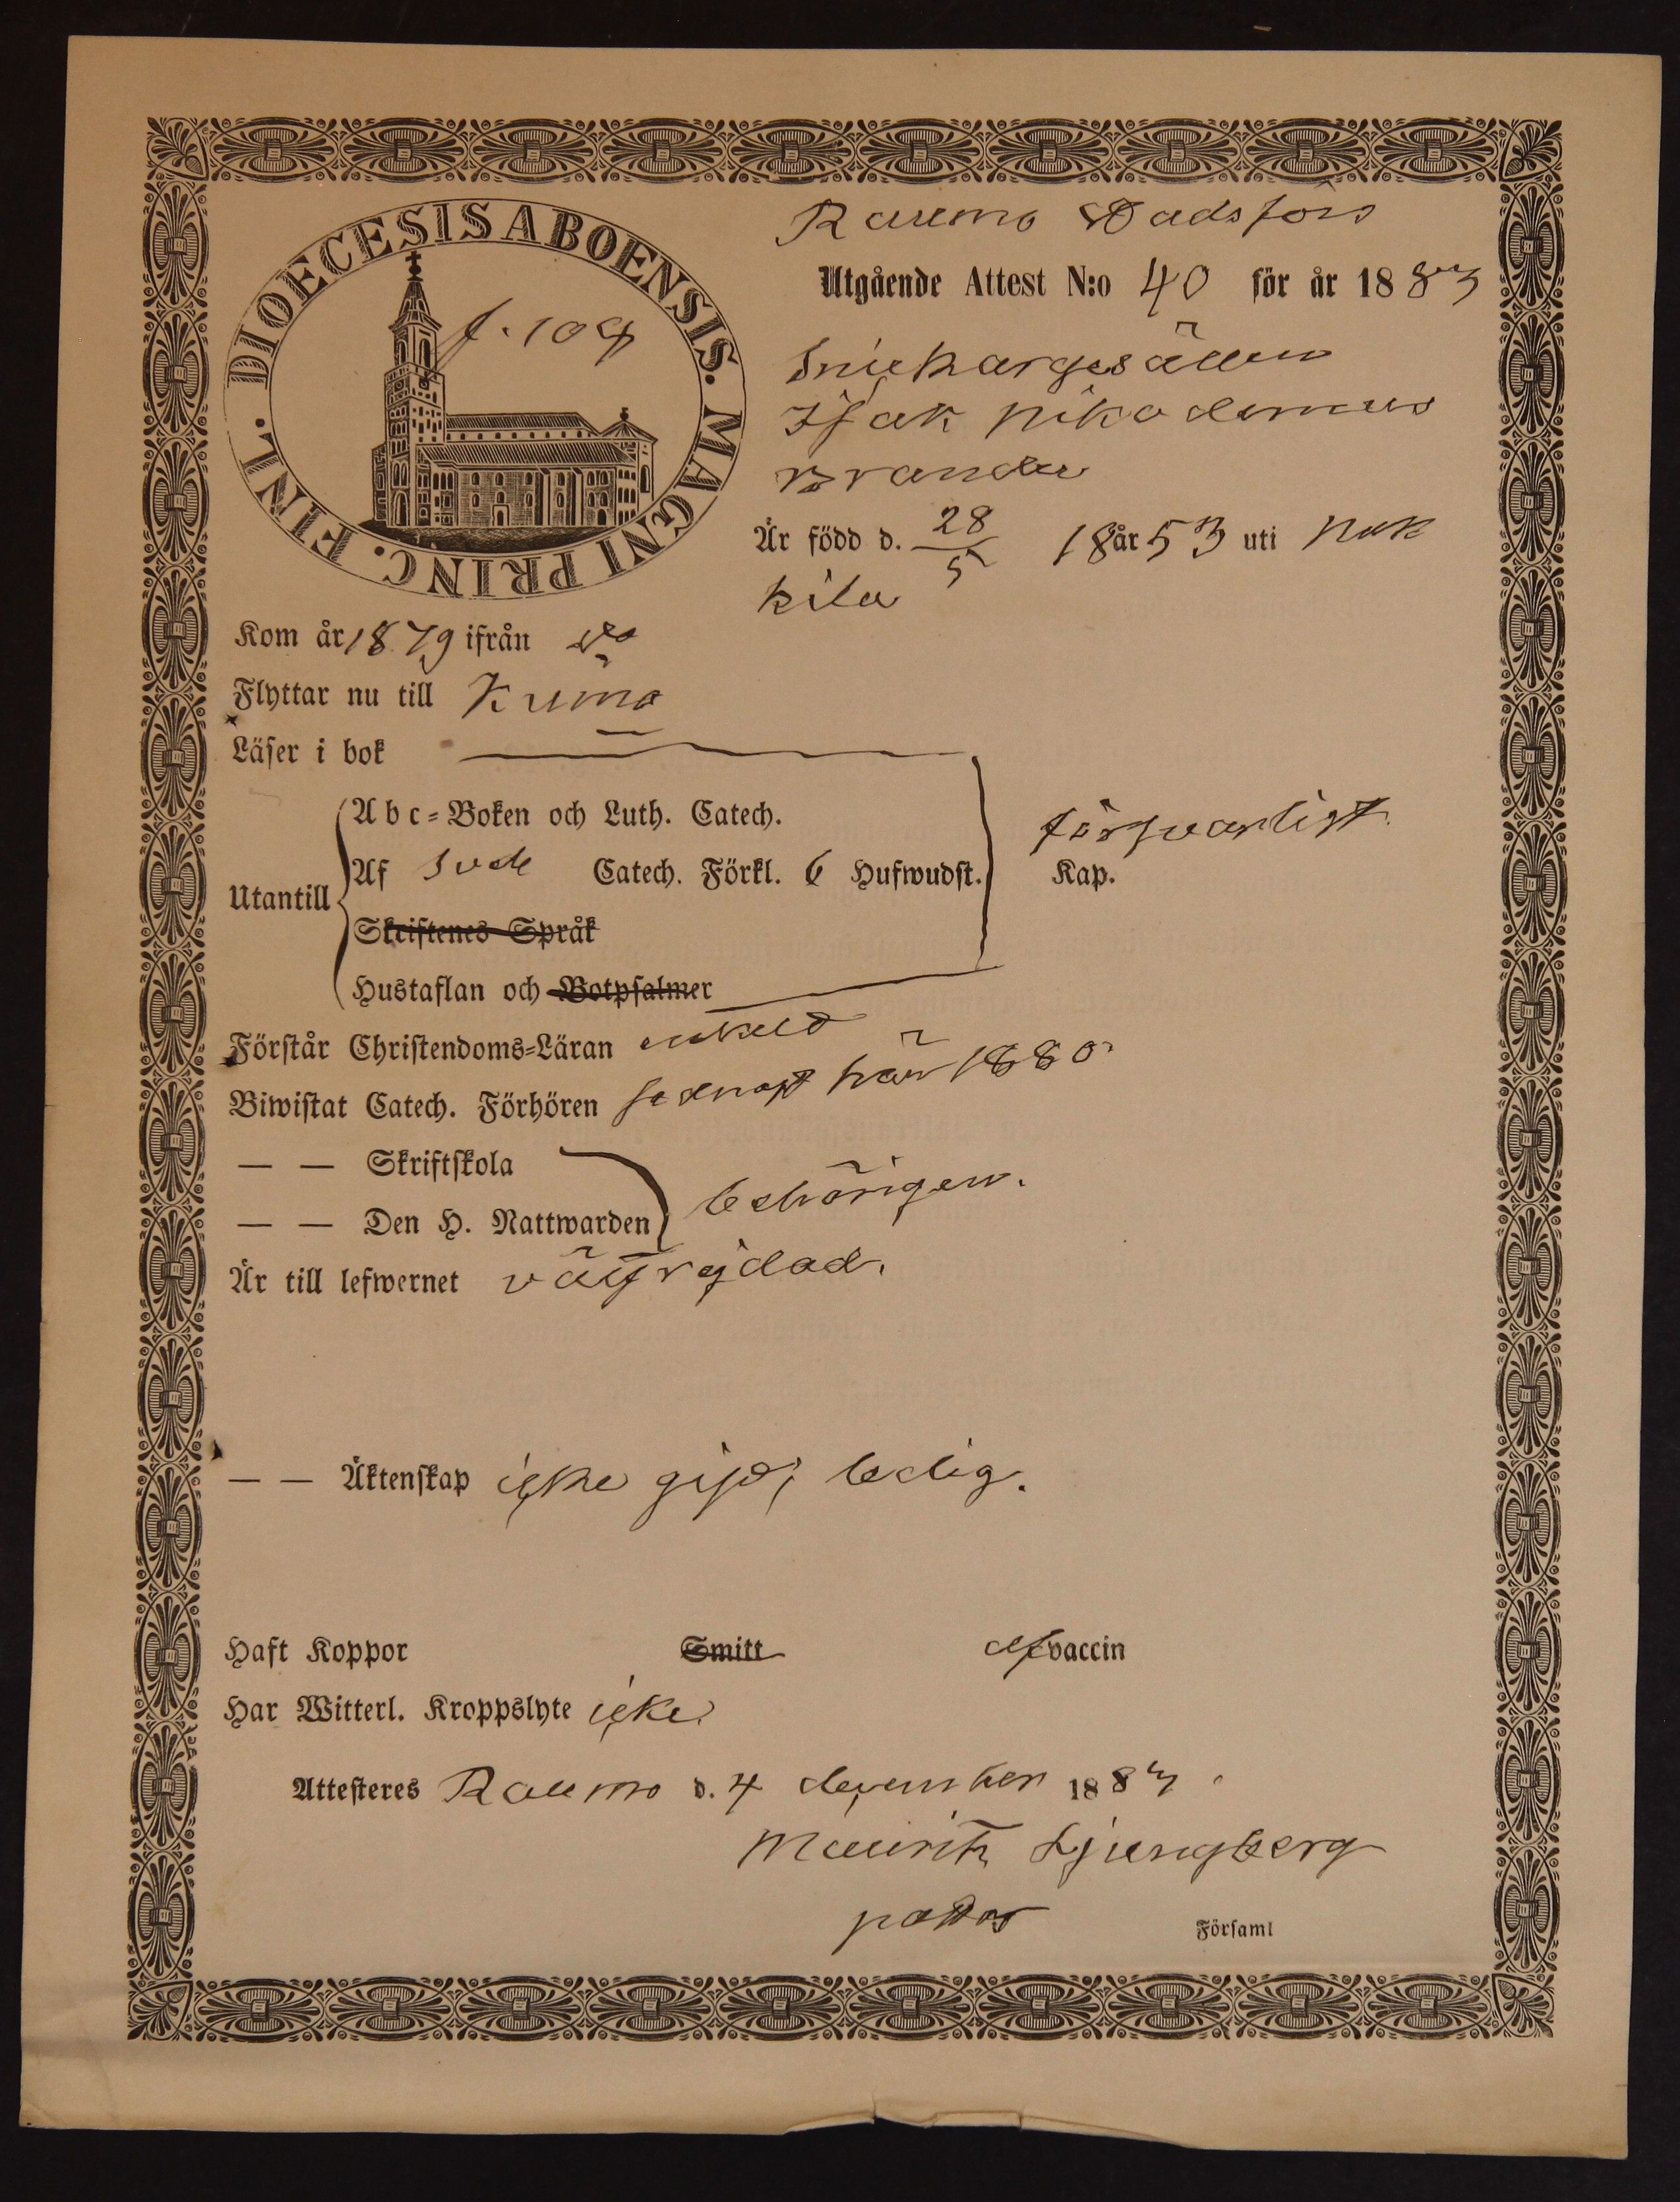 DIOECESIS ABOENSIS. MAGNI PRINC. FINL.
f. 109
Raumo Stadsförs
Utgående Attest N:o 40 för år 1883
Snickargesällen
Isak Nikodemus
Brander
Är född d. 28/5 18år53 uti Nak
kila
Kom år 1879 ifrån do
Flyttar nu till Kumo
Läser i bok
Abc-Boken och Luth. Catech.
försvarligt.
Utantill
Af Sveb Catech. Förkl. 6 Hufwudst. Kap.
Skriftenes Språk
Hustaflan och Botpsalmer
Förstår Christendoms-Läran enkelt
Biwistat Catech. Förhören sednast här 1880
— — Skriftskola
behörigen.
— — Den H. Nattwarden
Är till lefwernet välfrejdad.
— — Äktenskap icke gift, ledig.
Haft Koppor Smitt af vaccin
Har Witterl. Kroppslyte icke.
Attesteres Raumo d. 4 december 1883.
Mauritz Ljungberg
pastor Församl